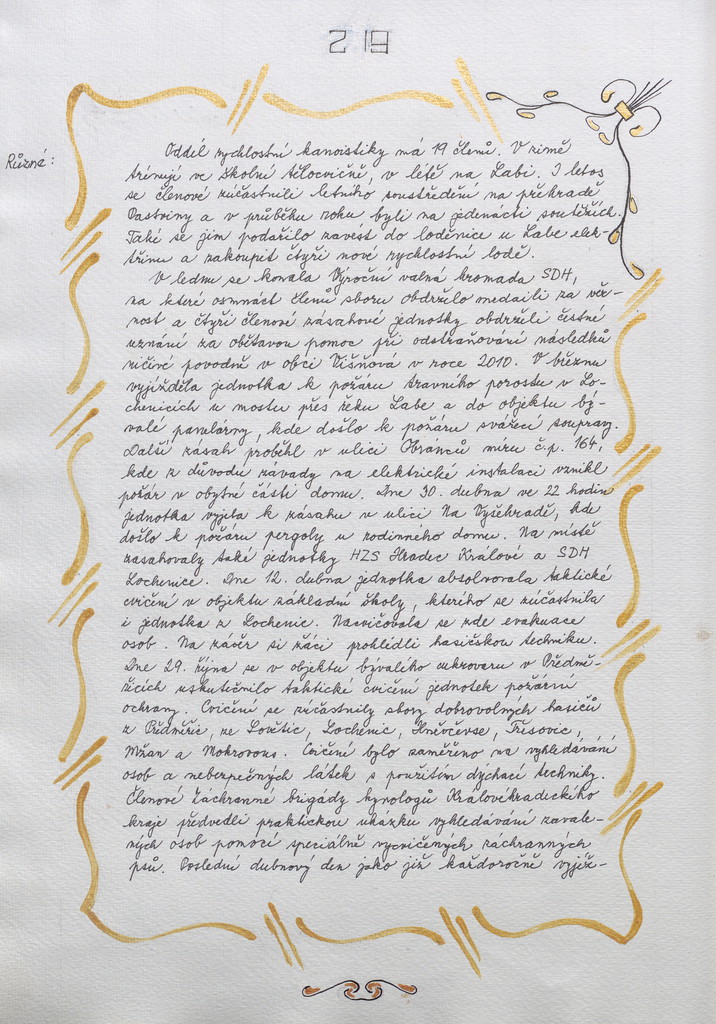 219
Různé:
Oddíl rychlostní kanoistiky má 19 členů. V zimě
trénují ve školní tělocvičně, v létě na Labi. I letos
se členové zúčastnili letního soustředění na přehradě
Pastviny a v průběhu roku byli na jedenácti soutěžích.
Také se jim podařilo zavést do loděnice u Labe elek-
třinu a zakoupit čtyři nové rychlostní lodě.
V lednu se konala Výroční valná hromada SDH,
na které osmnáct členů sboru obdrželo medaili za věr-
nost a čtyři členové zásahové jednotky obdrželi čestné
uznání za obětavou pomoc při odstraňování následků
ničivé povodně v obci Višňová v roce 2010. V březnu
vyjížděla jednotka k požáru travního porostu v Lo-
chenicích u mostu přes řeku Labe a do objektu bý-
valé panelárny, kde došlo k požáru svářecí soupravy.
Další zásah proběhl v ulici Obránců míru č.p. 164,
kde z důvodu závady na elektrické instalaci vznikl
požár v obytné části domu. Dne 30. dubna ve 22 hodin
jednotka vyjela k zásahu v ulici Na Vyšehradě, kde
došlo k požáru pergoly u rodinného domu. Na místě
zasahovaly také jednotky HZS Hradec Králové a SDH
Lochenice. Dne 12. dubna jednotka absolvovala taktické
cvičení v objektu základní školy, kterého se zúčastnila
i jednotka z Lochenic. Nacvičovala se zde evakuace
osob. Na závěr si žáci prohlédli hasičskou techniku.
Dne 29. října se v objektu bývalého cukrovaru v Předmě-
řicích uskutečnilo taktické cvičení jednotek požární
ochrany. Cvičení se zúčastnily sbory dobrovolných hasičů
z Předměřic, ze Lovětic, Lochenic, Hněvčevse, Třesovic,
Mžan a Mokrovous. Cvičení bylo zaměřeno na vyhledávání
osob a nebezpečných látek s použitím dýchací techniky.
Členové Záchranné brigády kynologů Královéhradeckého
kraje předvedli praktickou ukázku vyhledávání zavale-
ných osob pomocí speciálně vycvičených záchranných
psů. Poslední dubnový den jako již každoročně vyjíž-